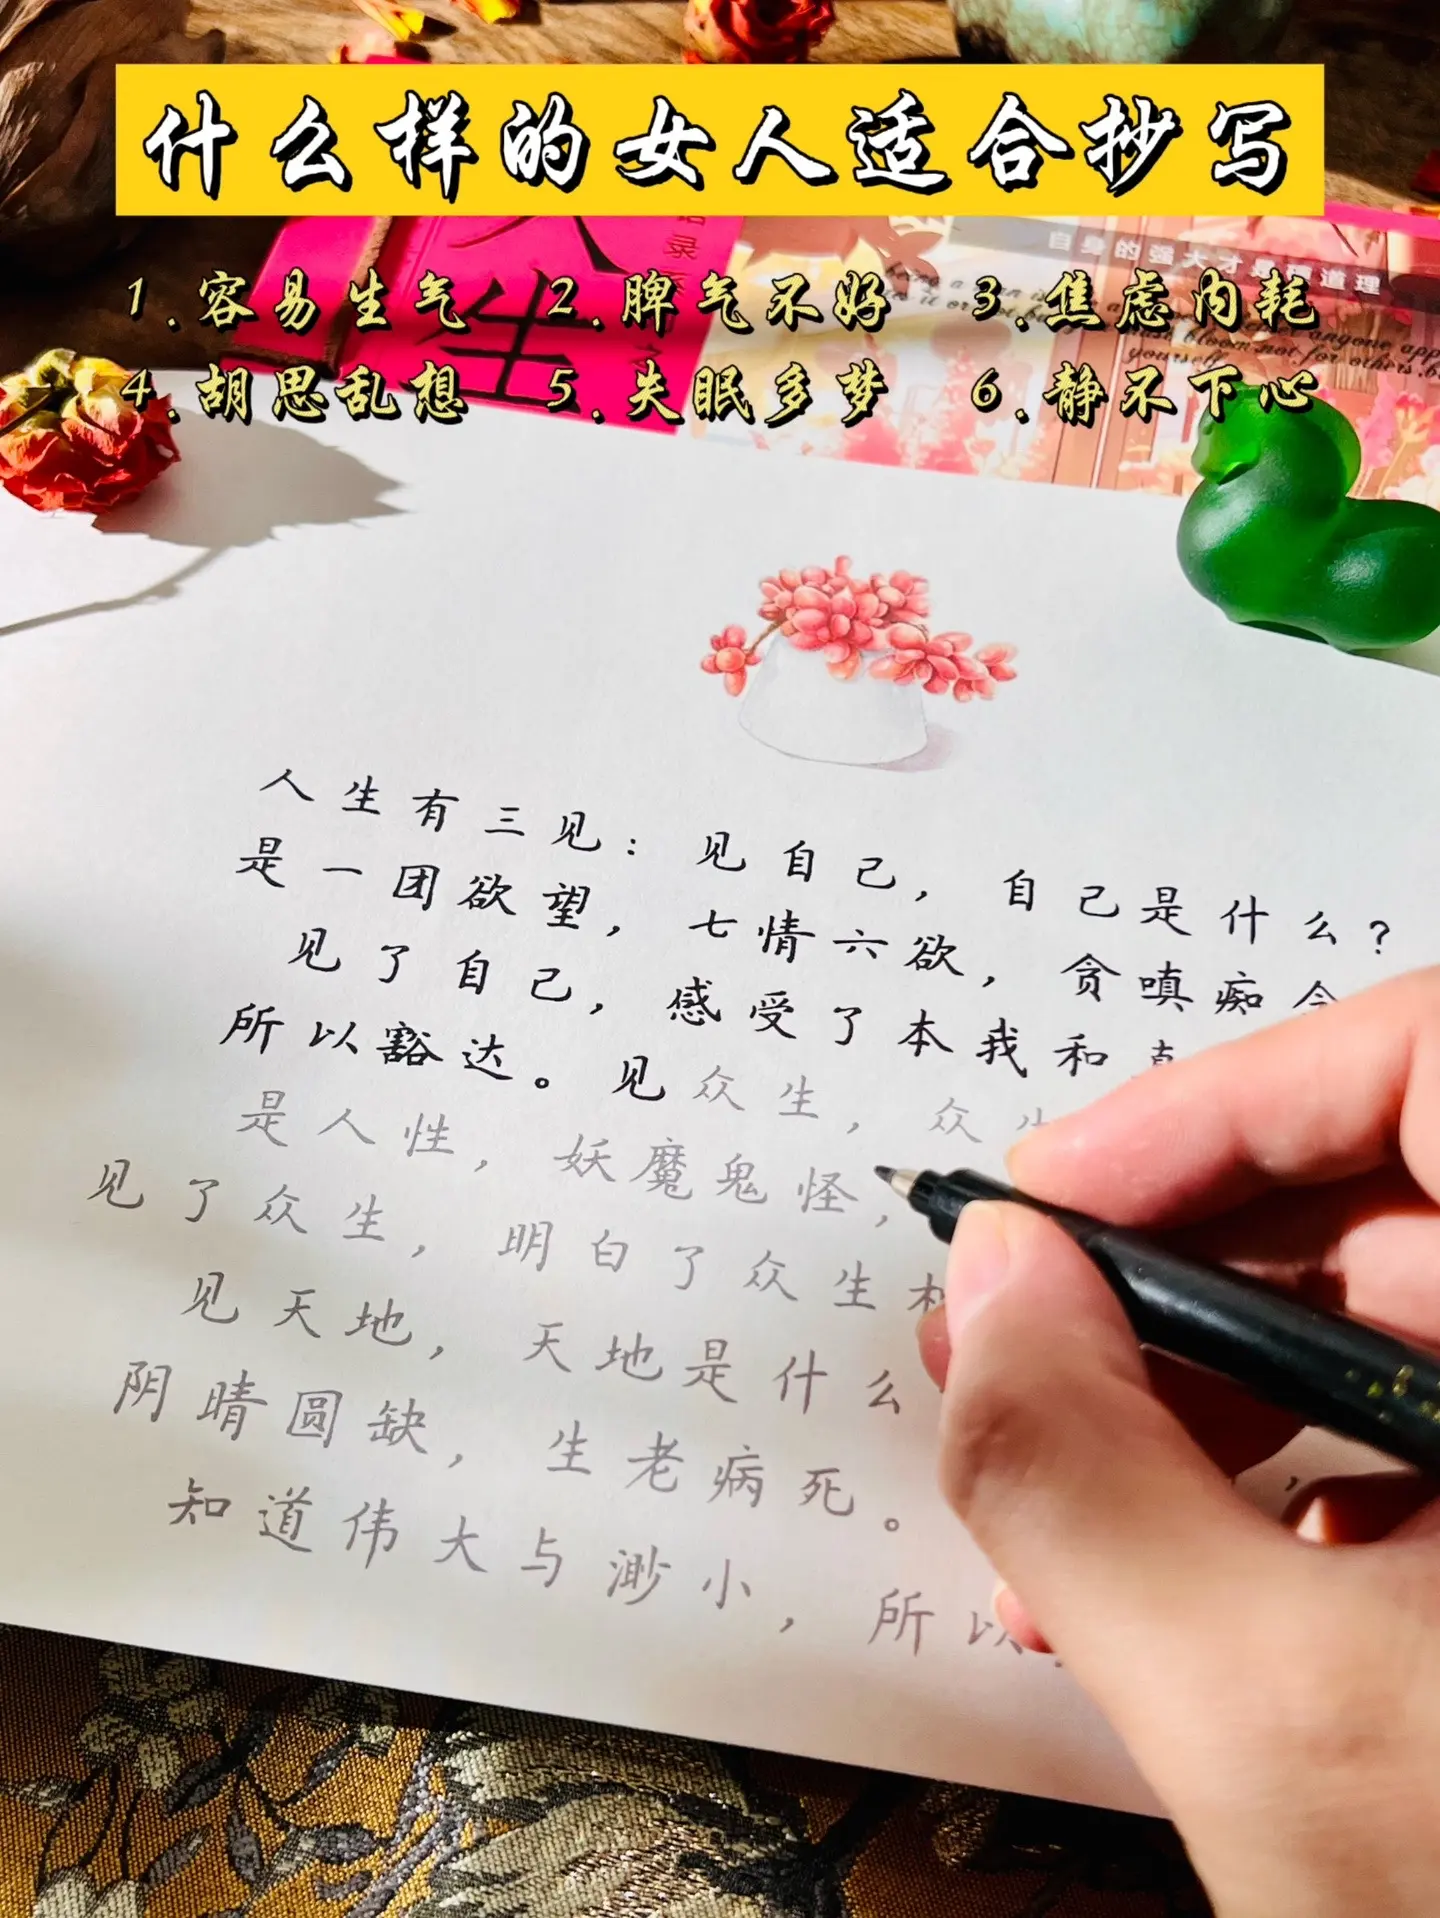 什么样的女人适合抄写
1.容易生气 2.脾气不好 3.焦虑内耗
4.胡思乱想 5.失眠多梦 6.静不下心
自身的强大才是硬道理
人生有三见：见自己，自己是什么？
是一团欲望，七情六欲，贪嗔痴念
见了自己，感受了本我和真
所以豁达。见众生，众生
是人性，妖魔鬼怪，
见了众生，明白了众生相
见天地，天地是什么
阴晴圆缺，生老病死。
知道伟大与渺小，所以